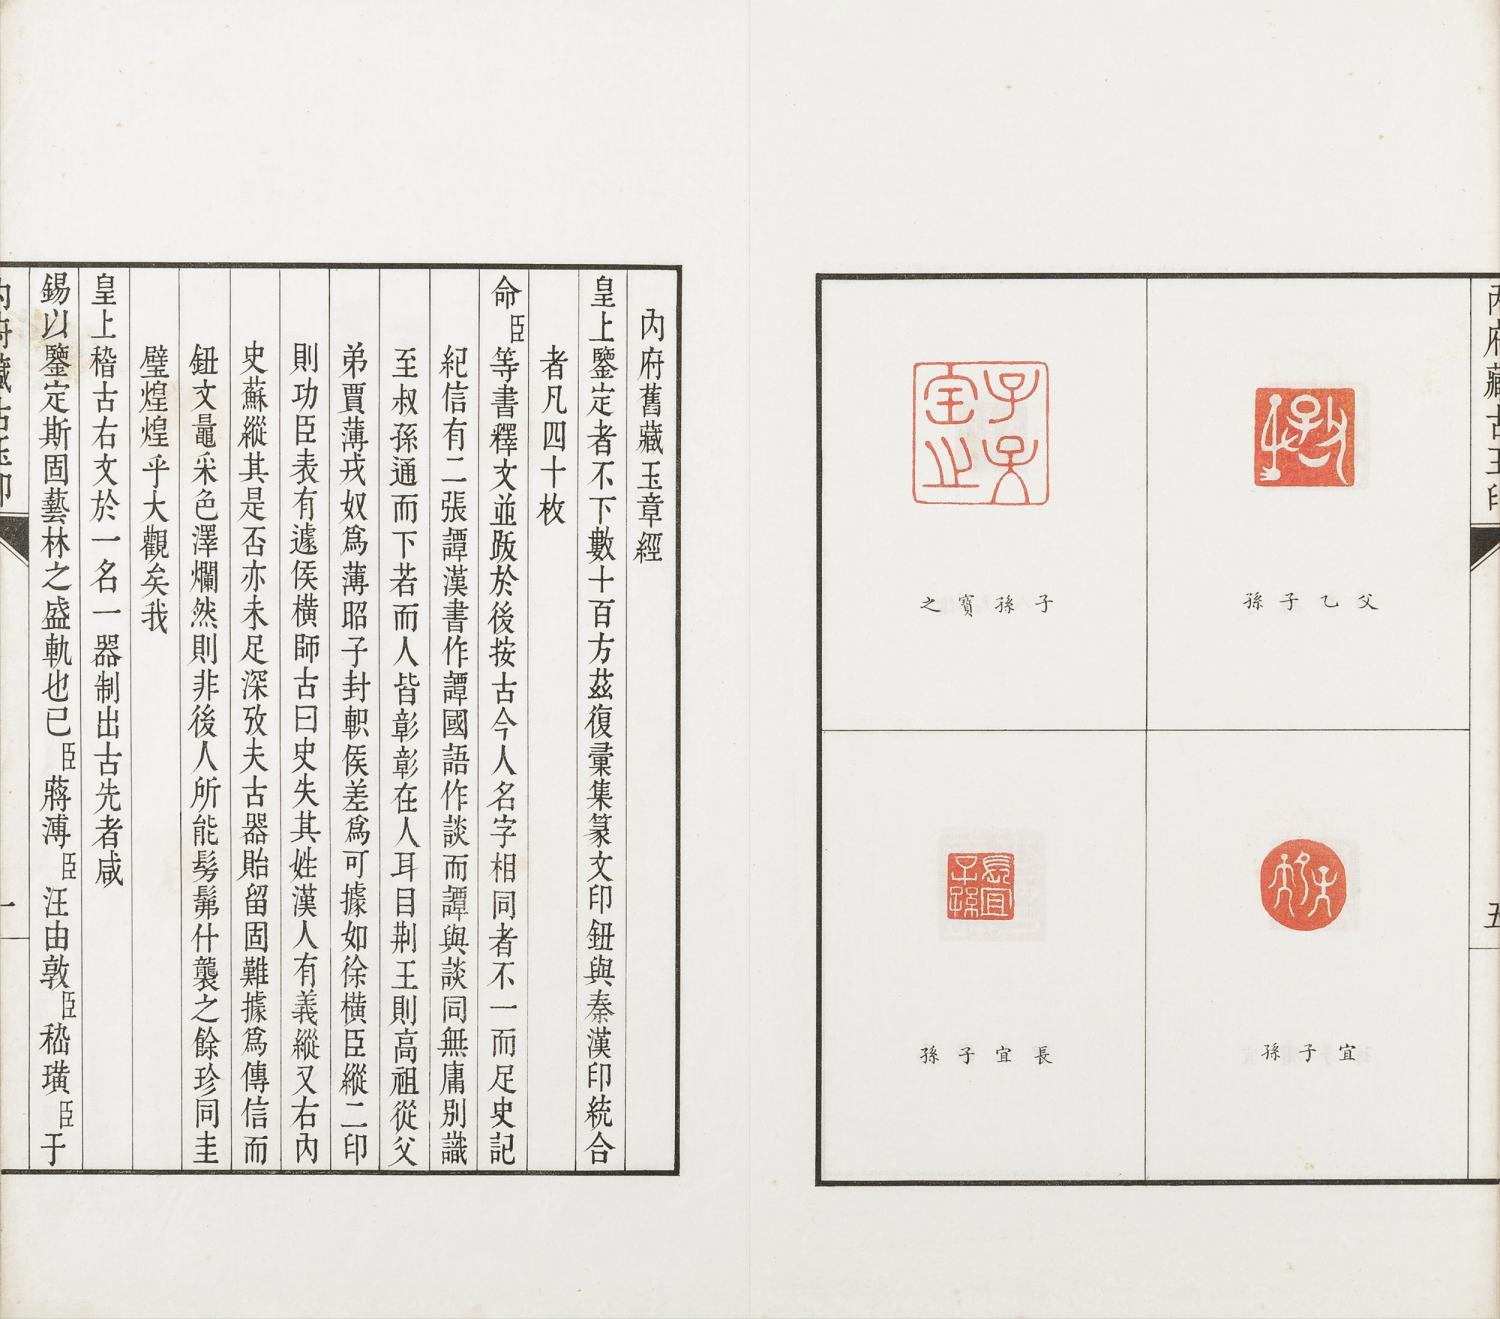 內府藏古玉印
五
父乙子孫
子孫寶之
宜子孫
長宜子孫
內府舊藏玉章經
皇上鑒定者不下數十百方茲復彙集篆文印鈕與秦漢印統合
者凡四十枚
命臣等書釋文並跋於後按古今人名字相同者不一而足史記
紀信有二張譚漢書作譚國語作談而譚與談同無庸別識
至叔孫通而下若而人皆彰彰在人耳目荆王則高祖從父
弟賈薄戎奴爲薄昭子封軹侯差爲可據如徐橫臣縱二印
則功臣表有遽侯橫師古曰史失其姓漢人有義縱又右內
史蘇縱其是否亦未足深攷夫古器貽留固難據爲傳信而
鈕文鼂采色澤爛然則非後人所能髣髴什襲之餘珍同圭
璧煌煌乎大觀矣我
皇上稽古右文於一名一器制出古先者咸
錫以鑒定斯固藝林之盛軌也已臣蔣溥臣汪由敦臣嵇璜臣于
內府藏古玉印
一